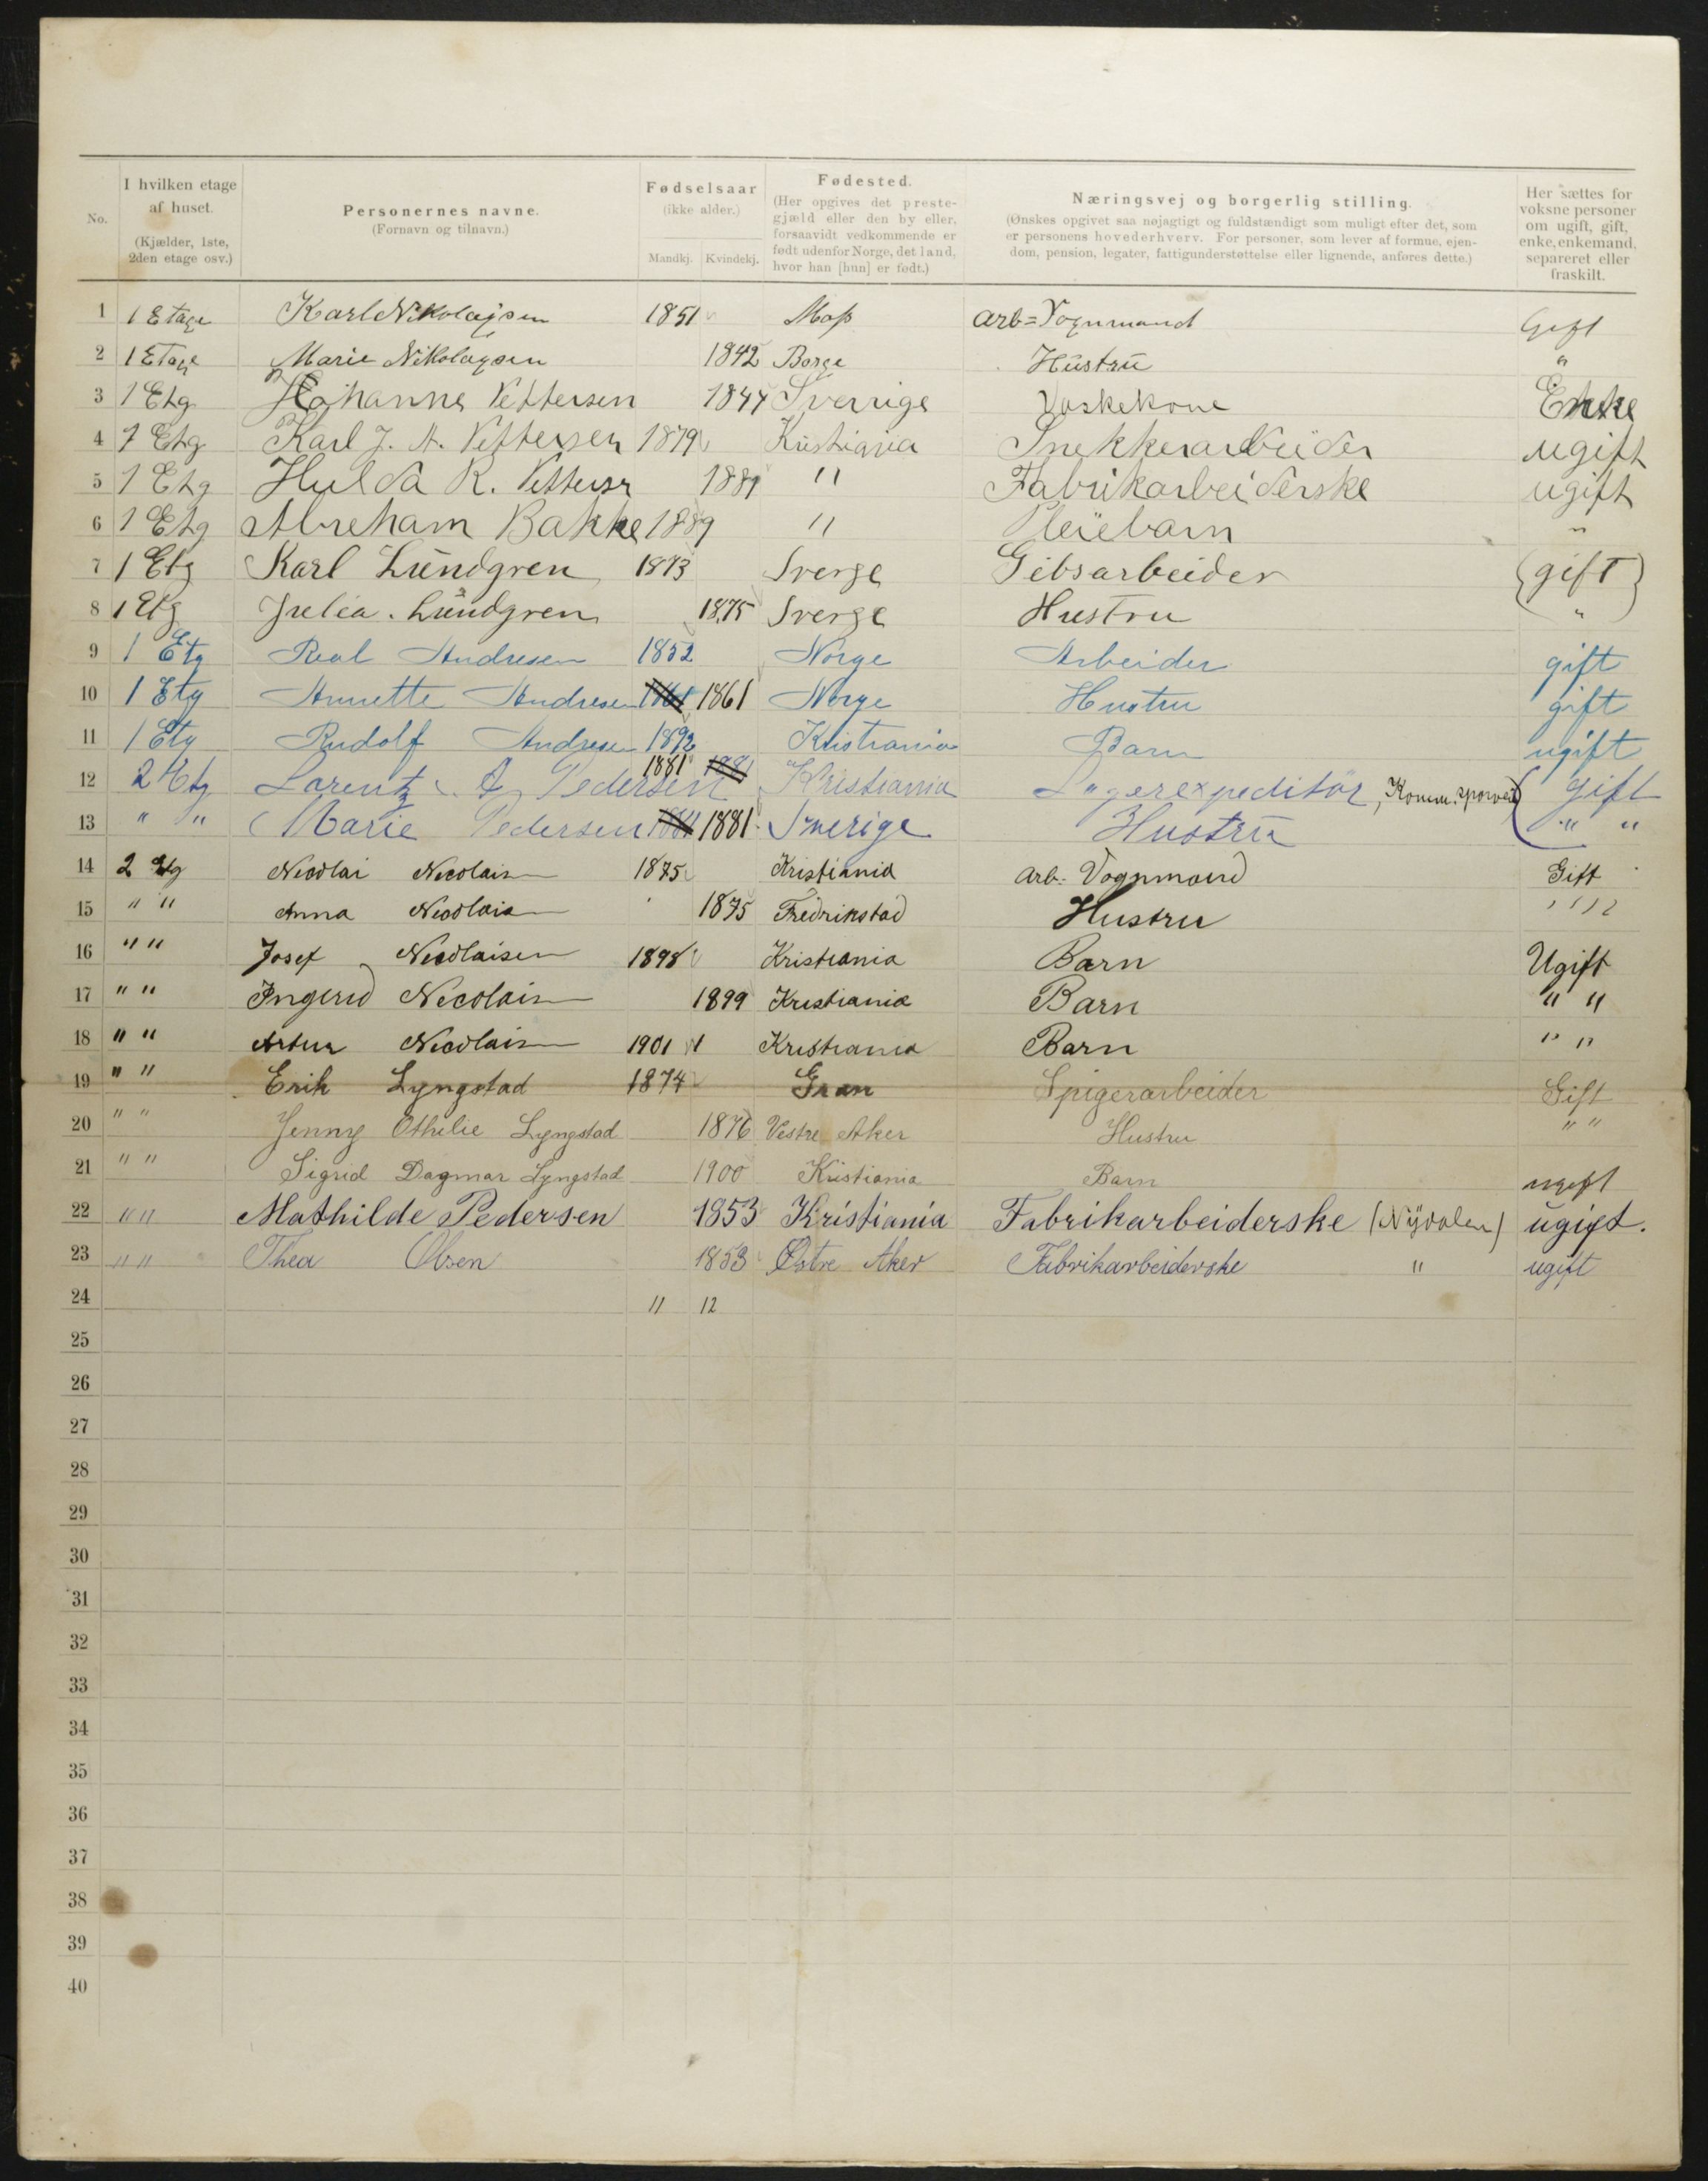 No.
I hvilken etage
af huset.
(Kjælder, 1ste,
2den etage osv.)
Personernes navne.
(Fornavn og tilnavn.)
Fødselsaar
(ikke alder.)
Mandkj. Kvindekj.
Fødested.
(Her opgives det preste-
gjæld eller den by eller,
forsaavidt vedkommende er
født udenfor Norge, det land,
hvor han [hun] er født.)
Næringsvej og borgerlig stilling.
(Ønskes opgivet saa nøjagtigt og fuldstændigt som muligt efter det, som
er personens hovederhverv. For personer, som lever af formue, ejen-
dom, pension, legater, fattigunderstøttelse eller lignende, anføres dette.)
Her sættes for
voksne personer
om ugift, gift,
enke, enkemand,
separeret eller
fraskilt.
1 1 Etage Karl Nikolajsen 1851 Moss arb=Vognmand Gift
2 1 Etage Marie Nikolaysen 1842 Borge Hustru "
3 1 Etg Johanne Pettersen 1844 Sverrige Vaskekone Enke
4 1 Etg Karl J. A. Pettersen 1879 Kristiania Snekkerarbeider ugift
5 1 Etg Hulda R. Pettersen 1881 " Fabrikarbeiderske ugift
6 1 Etg Abreham Bakke 1889 " Pleiebarn "
7 1 Etg Karl Lundgren 1873 Sverge Gibsarbeider (gift)
8 1 Etg Julia. Lundgren 1875 Sverge Hustru "
9 1 Etg Andresen 1852 Norge Arbeider gift
10 1 Etg Annette Andresen 1861 Norge Hustru gift
11 1 Etg Rudolf Andresen 1892 Kristiania Barn ugift
12 2 Etg Lorentz A Pedersen 1881 Kristiania Lagerexpeditör, Komm. sporvei Gift
13 " " Marie Pedersen 1881 Sverige Hustru " "
14 2 Etg Nicolai Nicolaisen 1875 Kristiania arb. Vognmand Gift
15 " " Anna Nicolaisen 1875 Fredrikstad Hustru " "
16 " " Josef Nicolaisen 1898 Kristiania Barn Ugift
17 " " Ingerid Nicolaisen 1899 Kristiania Barn " "
18 " " Artur Nicolaisen 1901 Kristiania Barn " "
19 " " Erik Lyngstad 1874 Gran Spigerarbeider Gift
20 " " Jenny Othilie Lyngstad 1876 Vestre Aker Hustru " "
21 " " Sigrid Dagmar Lyngstad 1900 Kristiania Barn ugift
22 " " Mathilde Pedersen 1853 Kristiania Fabrikarbeiderske (Nydalen) ugift.
23 " " Thea Olsen 1853 Østre Aker Fabrikarbeiderske " ugift
24 11 12
25
26
27
28
29
30
31
32
33
34
35
36
37
38
39
40